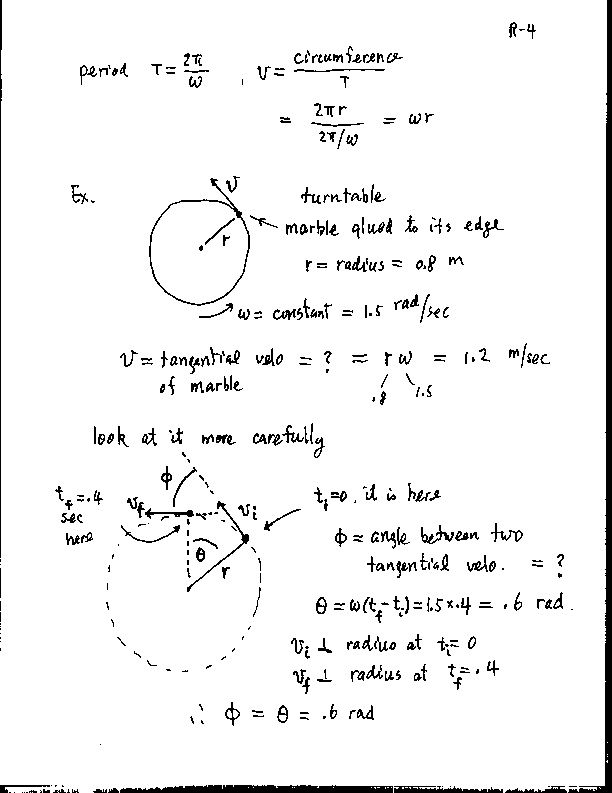 R-4
period T = 2π/ω , v = circumference/T
= 2πr / 2π/ω = ωr
Ex.
v
r
turntable
marble glued to its edge
r = radius = 0.8 m
ω = constant = 1.5 rad/sec
v = tangential velo = ? = r ω = 1.2 m/sec
of marble
.8 1.5
look at it more carefully
ϕ
t_f = .4
sec
here
v_f
v_i
θ
r
t_i = 0, it is here
ϕ = angle between two
tangential velo. = ?
θ = ω(t_f - t_i) = 1.5 × .4 = .6 rad.
v_i ⊥ radius at t_i = 0
v_f ⊥ radius at t_f = .4
∴ ϕ = θ = .6 rad